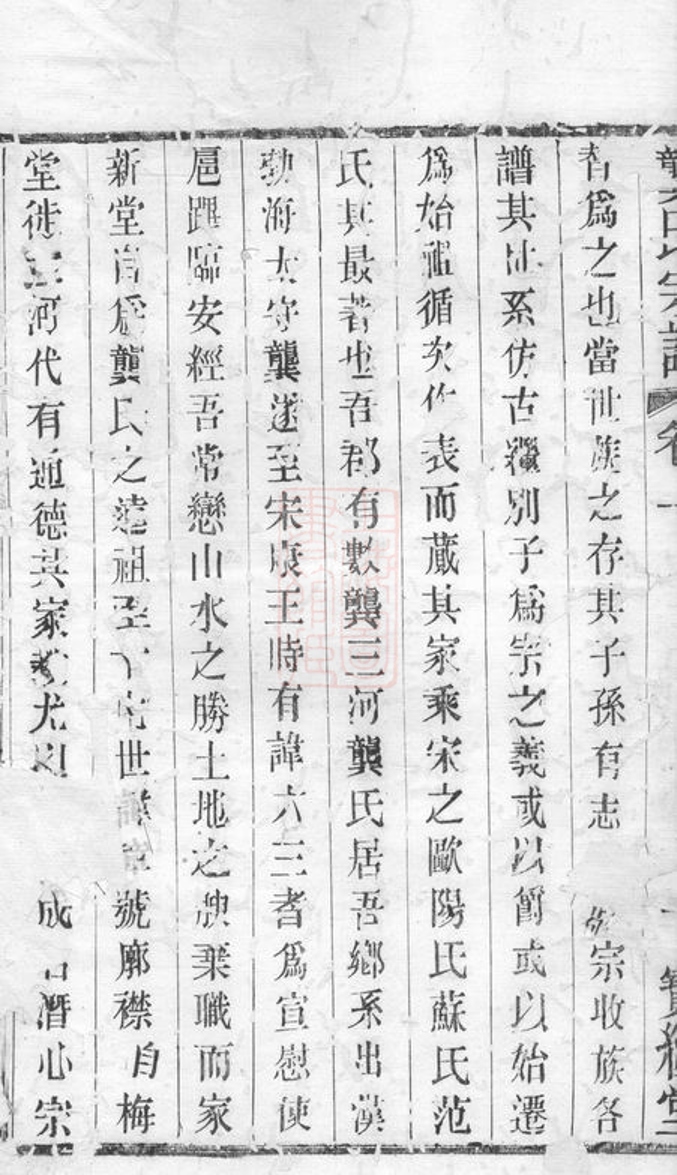 氏宗譜 卷一 寶
者爲之也當世族之存其子孫有志 敬宗收族各
譜其世系仿古繼別子爲宗之義或以爵或以始遷
爲始祖循次作表而藏其家乘宋之歐陽氏蘇氏范
氏其最著也吾郡有數龔三河龔氏居吾鄉系出漢
勃海太守龔遂至宋康王時有諱六三者爲宣慰使
扈蹕臨安經吾常戀山水之勝土地之腴棄職而家
新堂首爲龔氏之遠祖至 世諱 號廓襟自梅
堂徙三河代有通德其家 尤 成 潛心宗